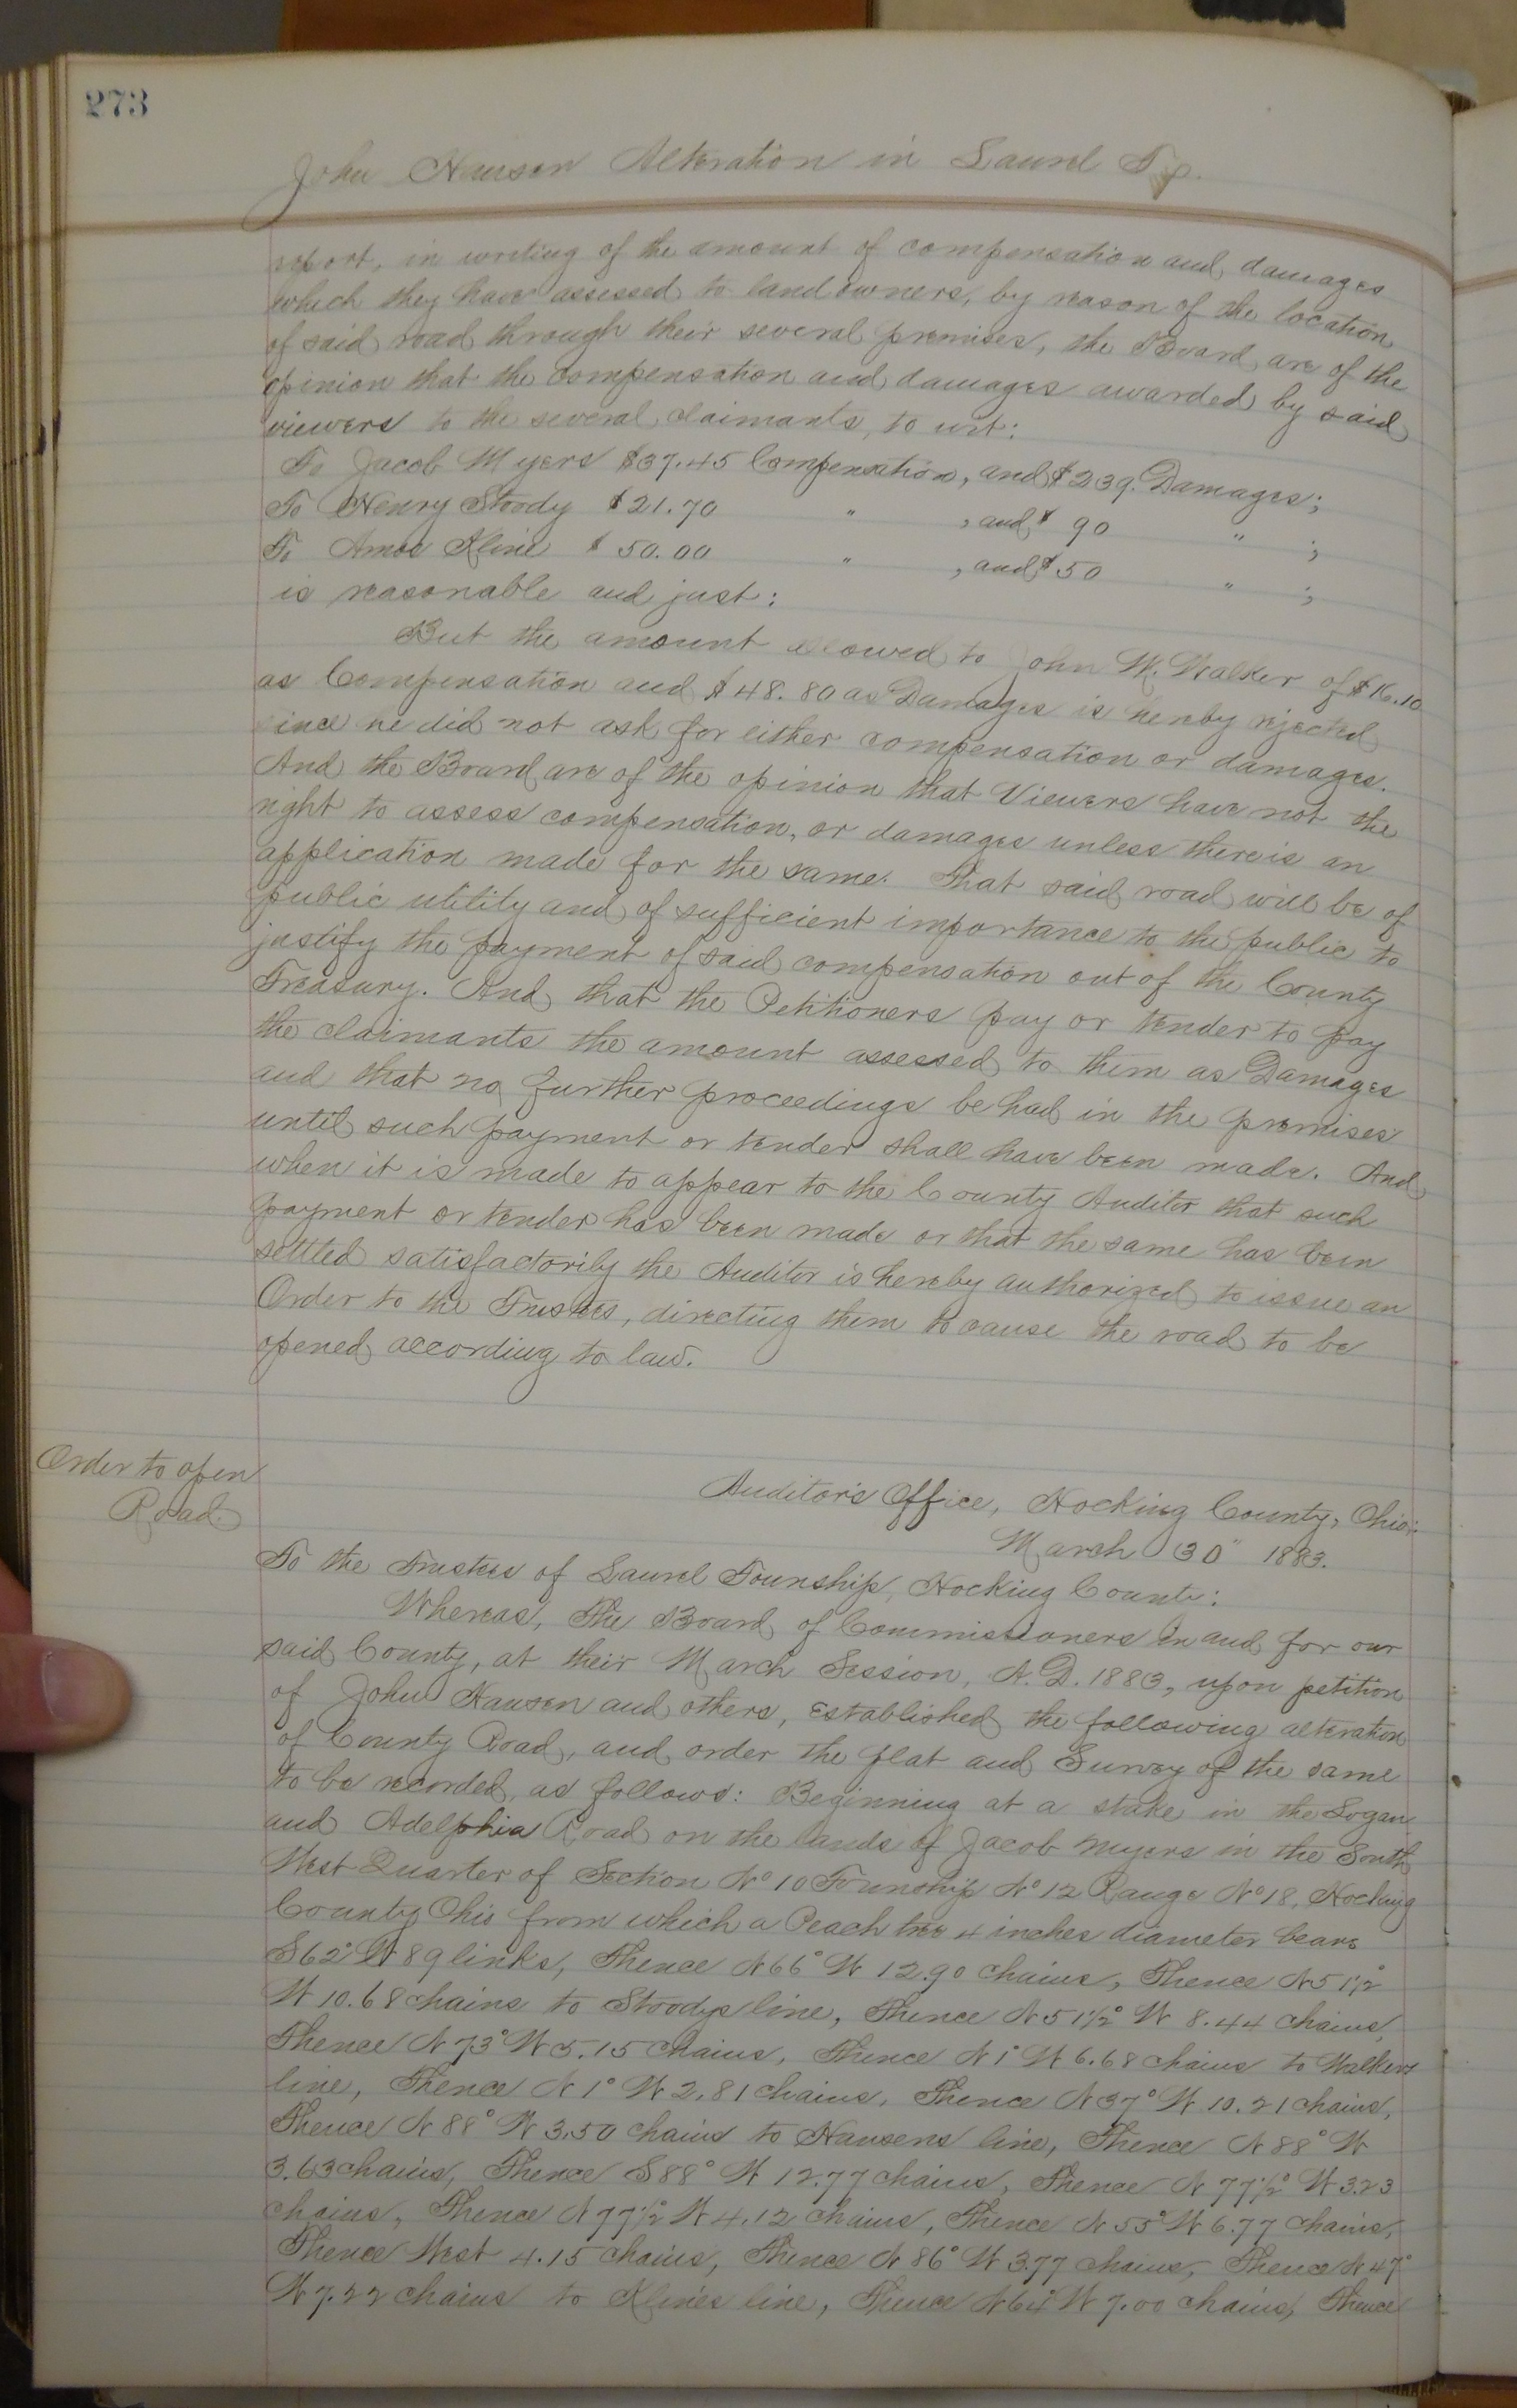 273
John Hansen Alteration in Laurel Tp.
report, in writing of the amount of compensation and damages
which they have assessed to land owners, by reason of the location
of said road through their several premises, the Board are of the
opinion that the compensation and damages awarded by said
viewers to the several claimants, to wit:
To Jacob Myers $37.45 Compensation, and $239. Damages;
To Henry Stoody $21.70 " , and $ 90 " ;
To Amos Kline $ 50.00 " , and $ 50 " ;
is reasonable and just:
But the amount allowed to John W. Walker of $16.10
as Compensation and $48.80 as Damages is hereby rejected
since he did not ask for either compensation or damages.
And the Board are of the opinion that Viewers have not the
right to assess compensation, or damages unless there is an
application made for the same. That said road will be of
public utility and of sufficient importance to the public to
justify the payment of said compensation out of the County
Treasury. And that the Petitioners pay or tender to pay
the claimants the amount assessed to them as Damages
and that no further proceedings be had in the premises
until such payment or tender shall have been made. And
when it is made to appear to the County Auditor that such
payment or tender has been made or that the same has been
settled satisfactorily the Auditor is hereby authorized to issue an
Order to the Trustees, directing them to cause the road to be
opened according to law.
Order to open
Road.
Auditor's Office, Hocking County, Ohio:
March 30" 1883.
To the Trustees of Laurel Township, Hocking County:
Whereas, The Board of Commissioners in and for our
said County, at their March Session, A.D. 1883, upon petition
of John Hansen and others, established the following alteration
of County Road, and order the plat and Survey of the same
to be recorded, as follows: Beginning at a stake in the Logan
and Adelphia Road on the lands of Jacob Myers in the South
West Quarter of Section No 10 Township No 12 Range No 18, Hocking
County Ohio from which a Peach tree 4 inches diameter bears
S 62° W 89 links, Thence N 66° W 12.90 chains, Thence N 51½°
W 10.68 chains to Stoodys line, Thence N 51½° W 8.44 chains,
Thence N 73° W 5.15 chains, Thence N 1° W 6.68 chains to Walkers
line, Thence N 1° W 2.81 chains, Thence N 37° W 10.21 chains,
Thence N 88° W 3.50 chains to Hansens line, Thence N 88° W
3.63 chains, Thence S 88° W 12.77 chains, Thence N 77½° W 3.23
chains, Thence N 77½° W 4.12 chains, Thence N 55° W 6.77 chains,
Thence West 4.15 chains, Thence N 86° W 3.77 chains, Thence N 47°
W 7.22 chains to Klines line, Thence N 64° W 7.00 chains, Thence